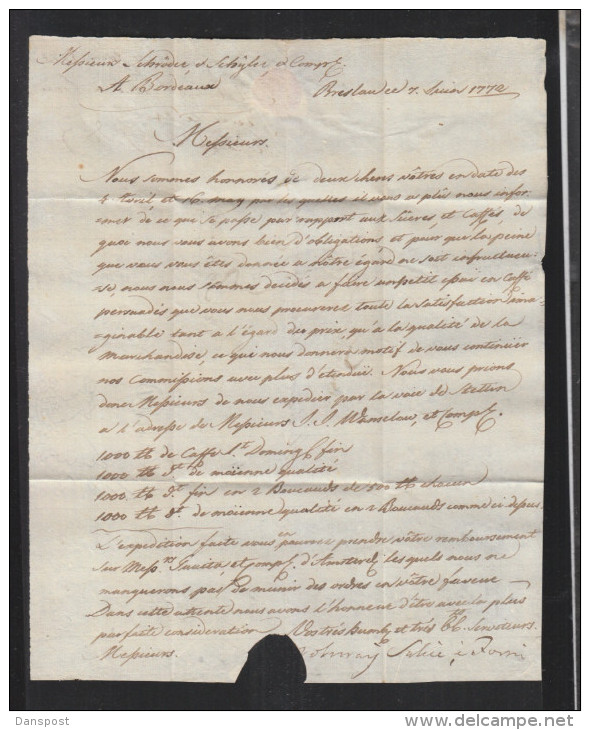 Messieurs Schröder & Schyler & Comp.
A Bordeaux Breslau ce 7. Juin 1772
Messieurs.
Nous sommes honnorés de deux cheres vôtres en date des
4 Avril et 16. may par les quelles il vous a plus nous infor-
mer de ce que se passe par rapport aux Sucres, et Caffés, de
quoi nous vous avons bien d'obligations et pour que la peine
que vous vous êtes donnée a nôtre égard ne soit infructueu-
se, nous nous sommes decidés a faire un petit essai en Caffe
persuadés que vous nous procurerez toute la satisfaction ima-
ginable tant a l'égard des prix, qu'a la qualité de la
Marchandise, ce qui nous donnera motif de vous continuer
nos Commissions avec plus d'etenduë. Nous vous prions
donc Messieurs de nous expedier par la voie de Stettin
a l'adresse de Messieurs J. J. Wanselow, et Comp.
1000 lb de Caffe St. Doming fin
1000 lb d.º de moienne qualité
1000. lb d.º fin en 2 Boucauds de 500 lb chacun
1000 lb d.º de moienne qualité en 2 Boucauds comme ci depus
L'expedition faite vous en pourrez prendre vôtre remboursement
sur Mess.rs et Comp. d'Amsterd. les quels nous ne
manquerons pas de munir des ordres en vôtre faveur
Dans cette attente nous avons l'honneur d'être avec la plus
parfaite consideration Vos trés humb. et trés Ob. Serviteurs.
Messieurs.
Danspost www.delcampe.net